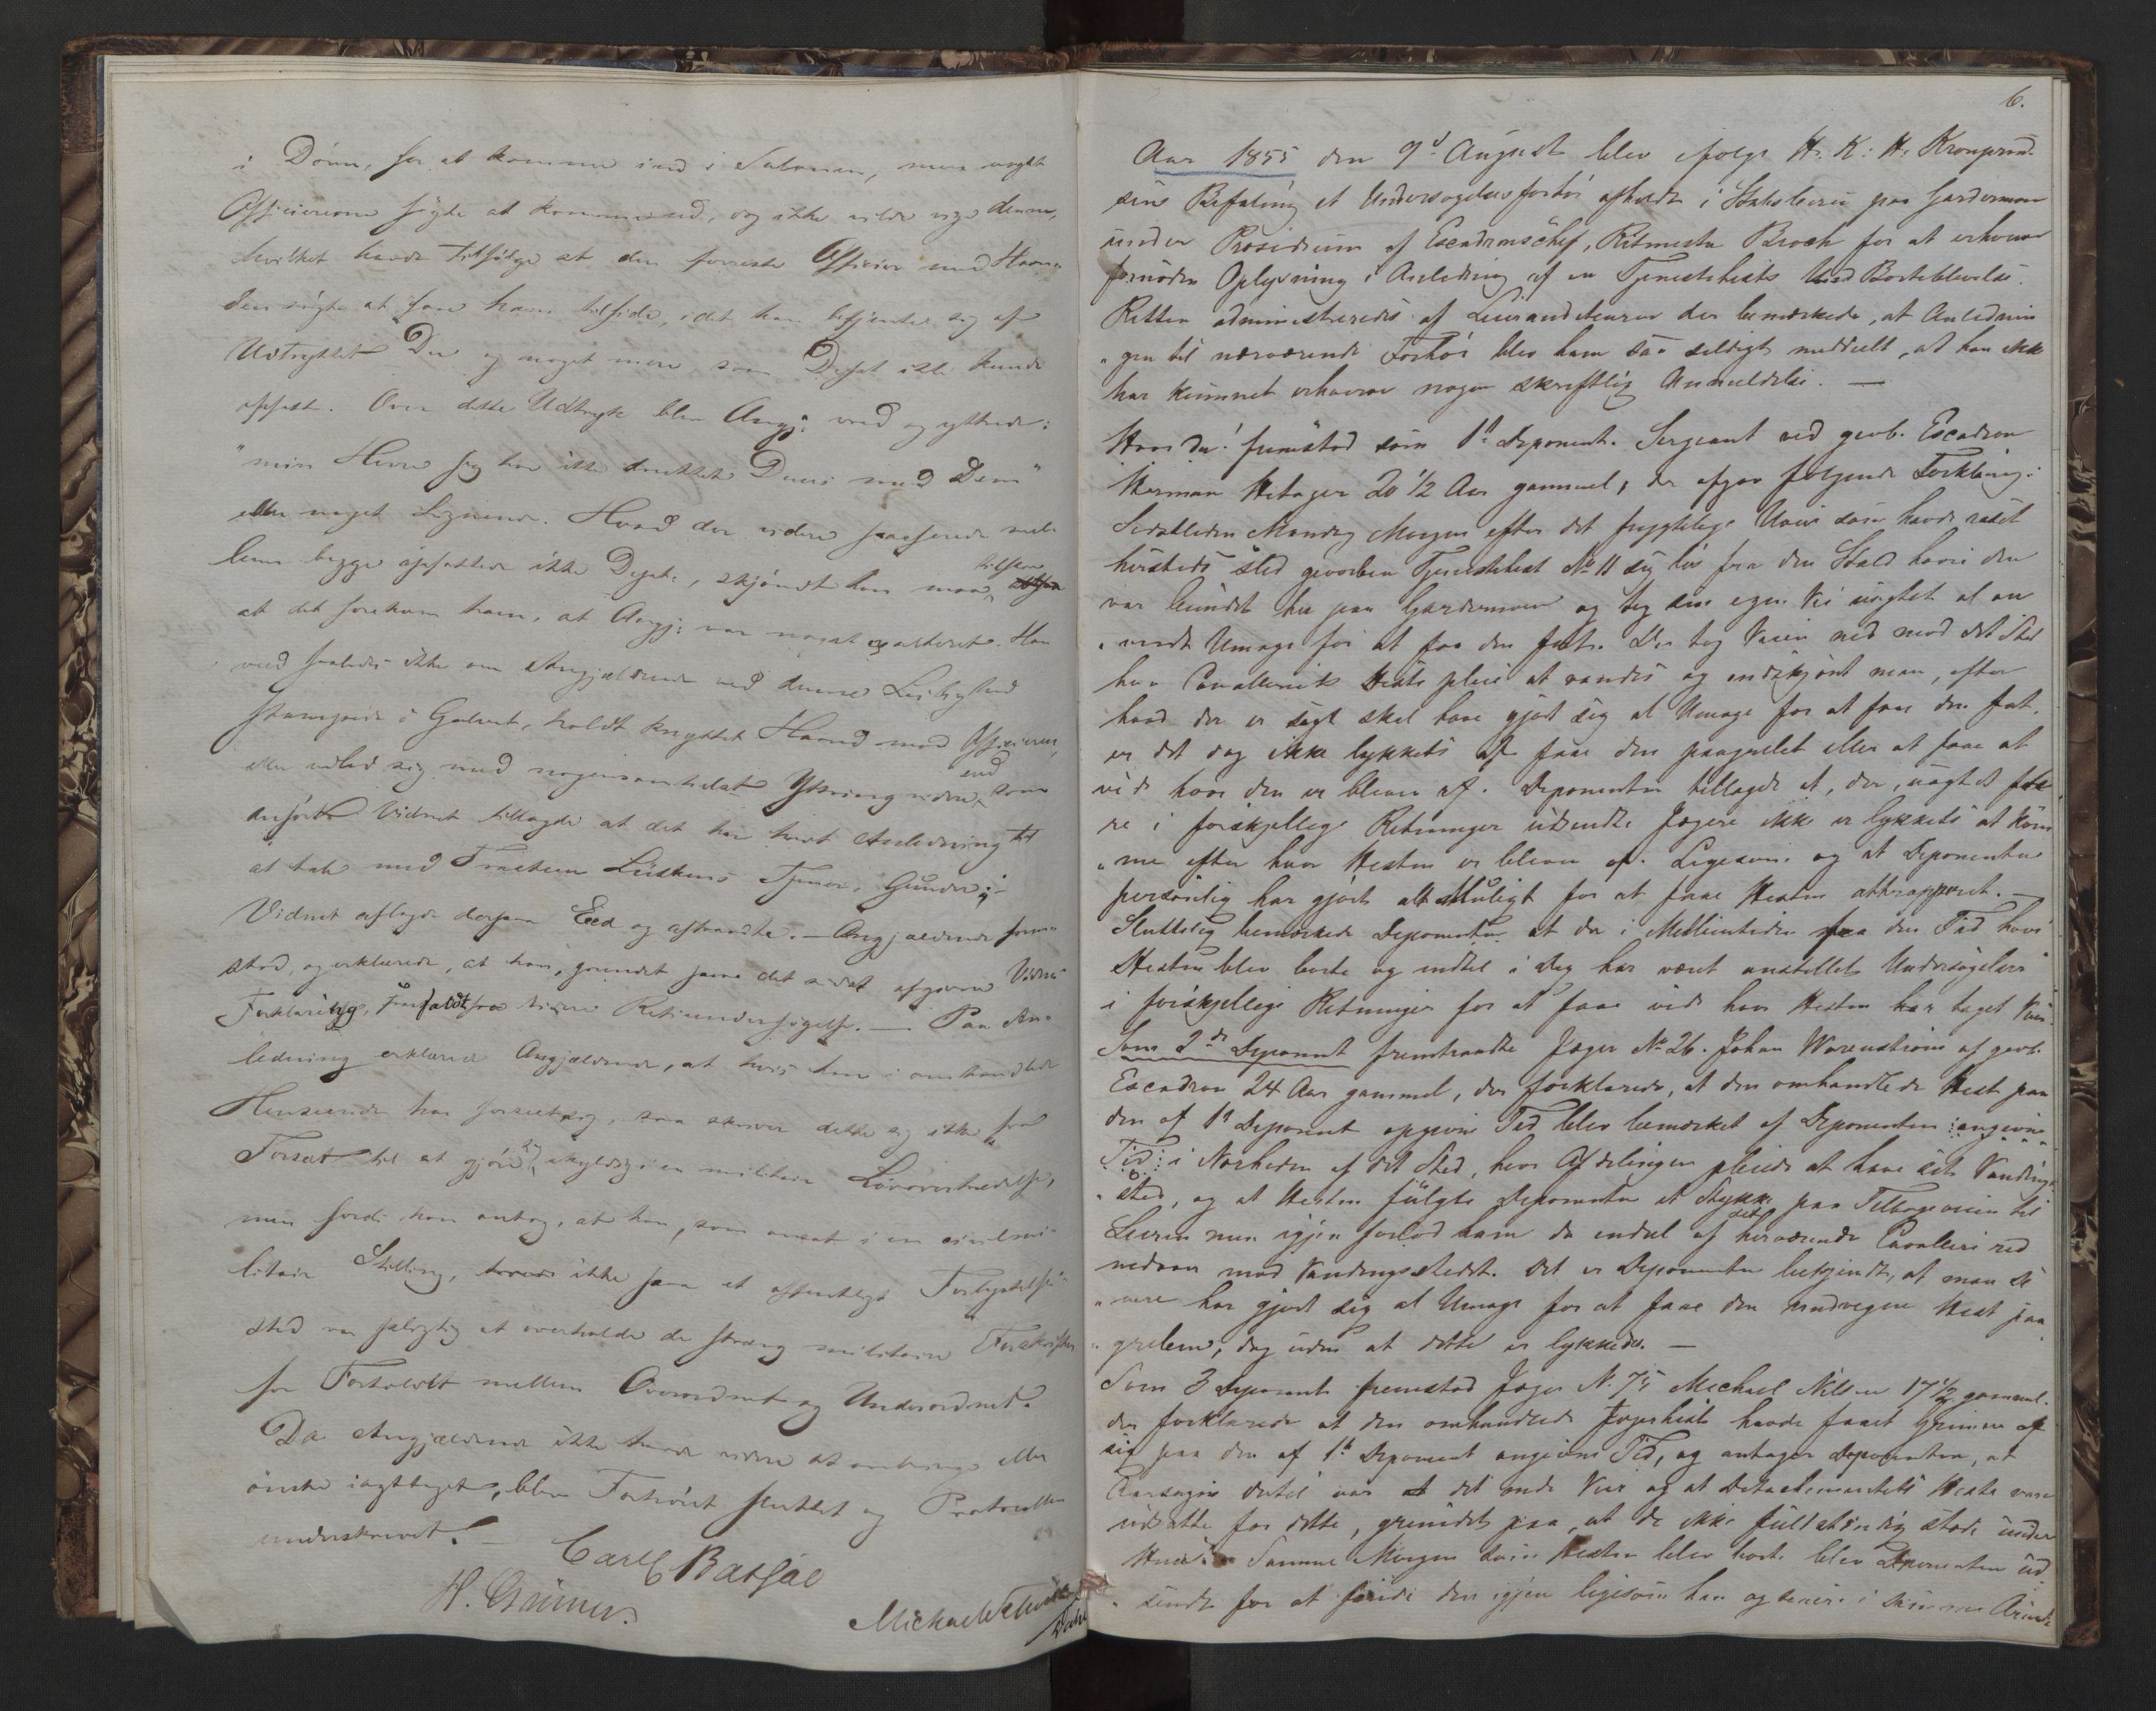 i Døren, for at komme ind i Salonen, men nogle
Officierer søgte at komme ud, og ikke vilde vige denne,
hvilket havde tilfølge at den forreste Officier med Haan-
den søgte at faae ham tilside, idet han betjente sig af
Udtrykket Du og noget mere, som Depnt ikke kunde
opfatte. Over dette Udtryk blev Angj: vred og yttrede:
"min Herre jeg har ikke drukket Duus med Dem"
eller noget Lignende. Hvad der videre passerede mel-
lem begge opfattede ikke Depnt, skjøndt han maa tilstaae
at det forekom ham, at Angj: var noget exalteret. Han
veed saaledes ikke om Angjældende ved denne Leilighed
stampede i Gulvet, holdt knyttet Haand mod Officieren,
eller udlod sig med nogensomhelst Yttring videre end som
anført. Vidnet tillagde at det har havt Anledning til
at tale med Tracteur Tjener, Gunder;
Vidnet aflagde derpaa Eed og aftraadte. – Angjældende frem-
stod, og erklærede, at han, grundet paa det sidst afgivne Vidnes
Forklaring, frafaldt sin videre Retsundersøgelse. – Paa An-
ledning erklærede Angjældende, at hvis han i omhandlede
Henseende har forseet sig, saa skriver dette sig ikke fra
Forsæt til at gjøre sig skyldig i en militair Lovovertrædelse,
men fordi han antog, at han, som ansat i en civilmi-
litair Stilling, ikke paa et offentligt Forlystelses-
sted var pligtig at overholde de stræng militaire Forskrifter
for Forholdet mellem Overordnet og Underordnet.
Da Angjældende ikke havde videre at anbringe eller
ønske iagttaget, blev Forhøret sluttet og Protocollen
underskrevet. –
Carl
H.
Michael
6.
Aar 1855 den 9d August blev ifølge H. K: H. Kronprind-
sens Befaling et Undersøgelsesforhør afholdt i Stabsleiren paa Gardermoen
under Præsidium af Escadronschef, Ritmester Broch for at erhverve
fornøden Oplysning i Anledning af en Tjenestehests Bortblivelse.
Retten administreredes af Leirauditeuren der bemærkede, at Anlednin
"gen til nærværende Forhør blev ham saa sildigt meddeelt, at han ikke
har kunnet erhverve nogen skriftlig Anmeldelse. —
Hvorda! fremstod som 1st Deponent. Sergeant ved gevb. Escadron
Herman 20 1/2 Aar gammel, der afgav følgende Forklaring:
Sidstleden Mandag Morgen efter det frygtelige Uveir som havde raset
hersteds sled gevorben Tjenestehest No 11 sig løs fra den Stald hvori den
var bundet her paa Gardermoen og tog sin egen Vei uagtet al an
"vendt Umage for at faae den fat. Den tog Veien ned mod det Sted
hvor Cavalleriets Heste pleie at vandes og endskjønt man, efter
hvad der er sagt skal have gjort sig al Umage for at faae den fat,
er det dog ikke lykkets at faae den paagrebet eller at faae at
vide hvor den er bleven af. Deponenten tillagde at, der, uagtet
re i forskjellige Retninger udsendte Jægere ikke er lykkets at kom
"me efter hvor Hesten er bleven af. Ligesom og at Deponenten
personlig har gjort alt Muligt for at faae Hesten attrapperet. —
Sluttelig bemærkede Deponenten at der i Mellemtiden fra den Tid hvori
Hesten blev borte og indtil i Dag har været anstillet Undersøgelser
i forskjellige Retninger for at faae vide hvor Hesten har taget Veien.
Som 2de Deponent fremtraadte Jæger No 26. Johan Warenstrøm af gevb.
Escadron 24 Aar gammel, der forklarede, at den omhandlede Hest paa
den af 1st Deponent opgivne Tid blev bemærket af Deponenten :angivne
Tid: i Nærheden af det Sted, hvor Afdelingen pleiede at have sit Vandings-
"sted, og at Hesten fulgte Deponenten et Stykke paa Tilbageveien til
Leiren men igjen forlod ham da endeel af det herværende Cavalleri red
nedover mod Vandingsstedet. Det er Deponenten bekjendt, at man se
"nere har gjort sig al Umage for at faae den undvegne Hest paa
"greben, dog uden at dette er lykkedes. —
Som 3 Deponent fremstod Jæger N. 75 Michael Nilsen 17 1/2 gammel.
der forklarede at den omhandlede Jægerhest havde faaet Grimen af
sig paa den af 1st Deponent angivne Tid, og antager Deponenten, at
Aarsagen dertil var at det onde Veir og at Detachementets Heste vare
udsatte for dette, grundet paa, at de ikke fuldstændig stode under
Huus. Samme Morgen som Hesten blev borte blev Deponenten ud
"sendt for at finde den igjen ligesom han og senere i samme Ærinde